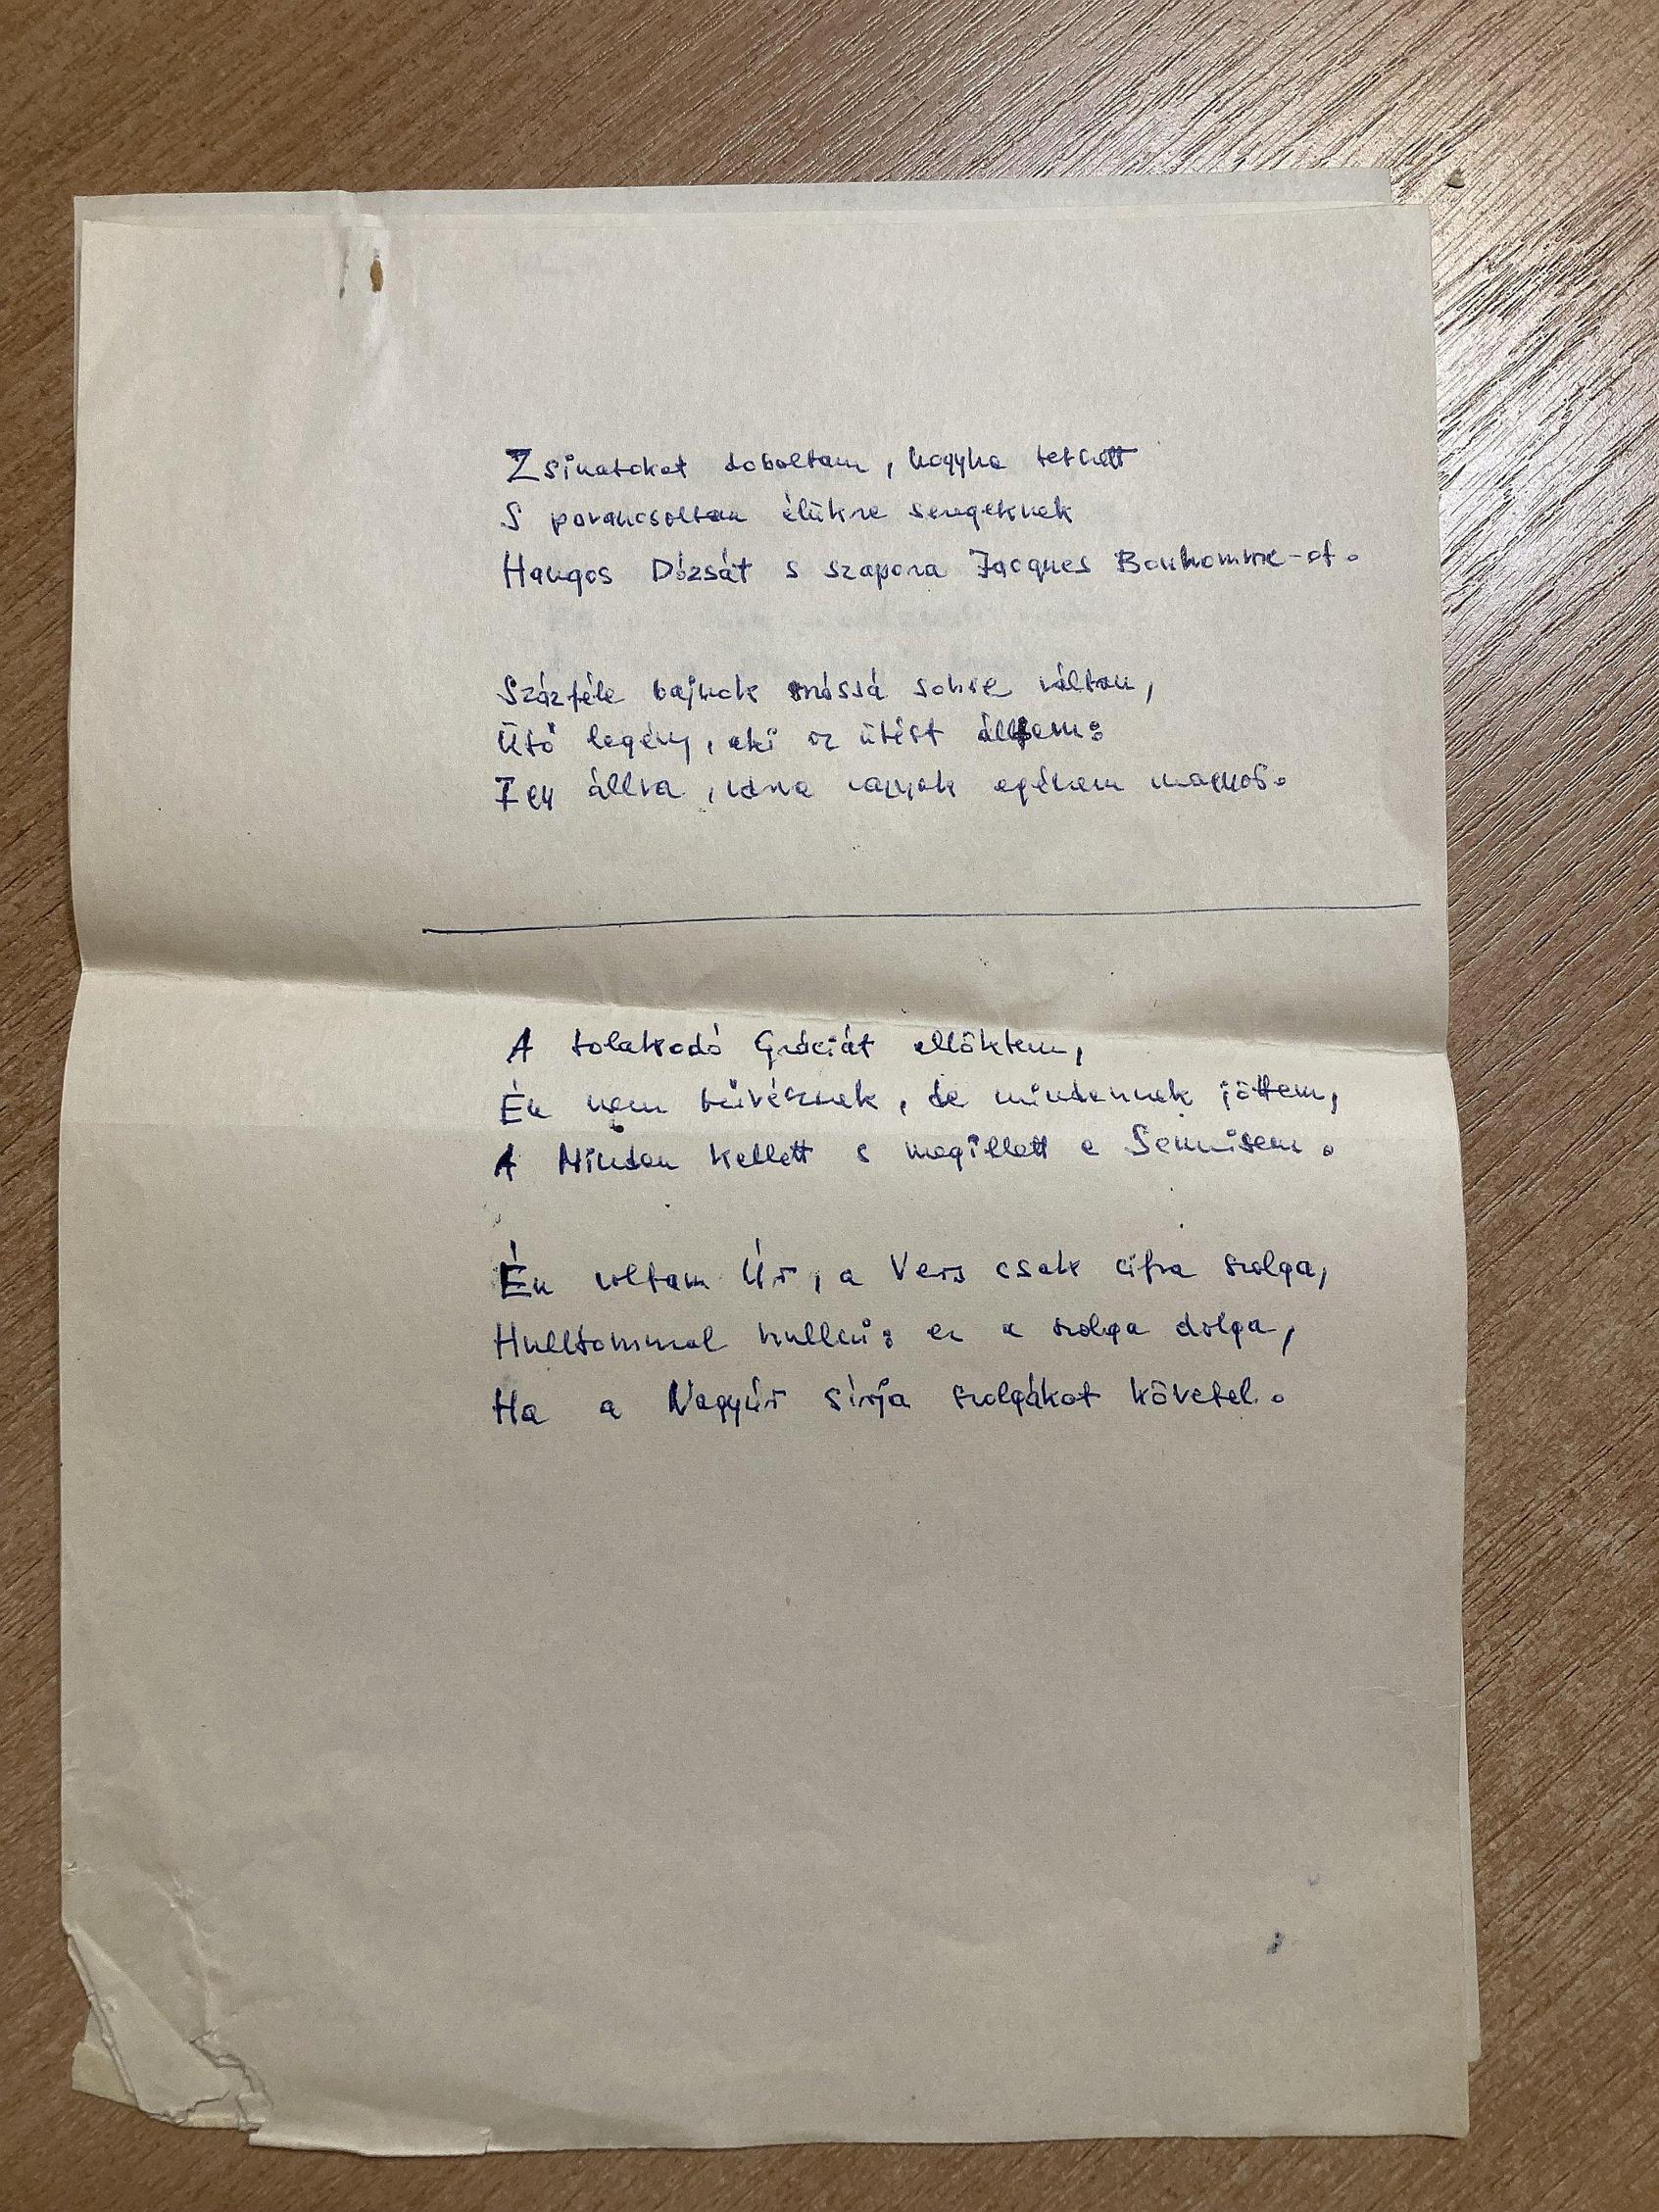 Zsinatokat doboltam, hogyha tetszett
S parancsoltam élükre seregeknek
Hangos Dózsát s szapora Jacques Bonhomme-ot.
Százféle bajnok mássá sohse váltan,
Ütő legény, aki az ütést álltam:
Így állva, várva vagyok egészen magyar.
A tolakodó Gráciát ellöktem,
Én nem bűvésznek, de mindennek jöttem,
A Minden kellett s megillet a Semmisem.
Én voltam Úr, a Vers csak cifra szolga,
Hulltommal hullni: ez a szolga dolga,
Ha a Nagyúr sírja szolgákat követel.